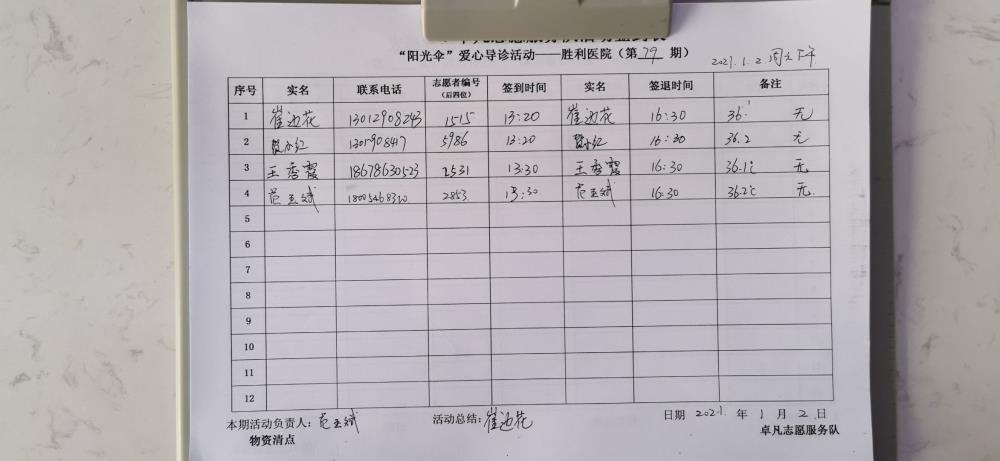 “阳光伞”爱心导诊活动——胜利医院（第 79 期）
2021.1.2.周六下午
序号 实名 联系电话 志愿者编号（后四位） 签到时间 实名 签退时间 备注
1 崔迎花 13012908243 1515 13:20 崔迎花 16:30 36. 无
2 小红 1301908417 5986 13:20 小红 16:30 36.2 无
3 王秀霞 18678630523 2531 13:30 王秀霞 16:30 36.1℃ 无
4 范玉斌 18005468320 2853 13:30 范玉斌 16:30 36.2℃ 无
5
6
7
8
9
10
11
12
本期活动负责人：范玉斌 活动总结：崔迎花 日期 2021. 年 1 月 2 日
物资清点 卓凡志愿服务队